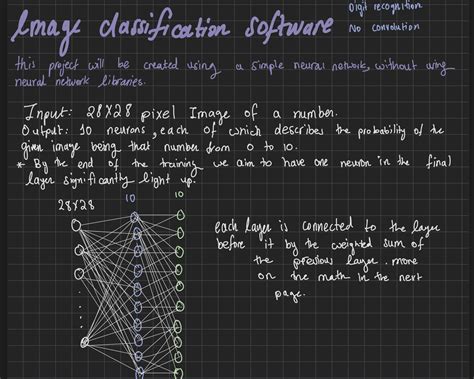 Image classification software
Digit recognition
No convolution
this project will be created using a simple neural network, without using
neural network libraries.
Input: 28X28 pixel Image of a number.
Output: 10 neurons, each of which describes the probability of the
given image being that number from 0 to 10.
* By the end of the training we aim to have one neuron in the final
layer significantly light up.
28X28
10
10
each layer is connected to the layer
before it by the weighted sum of
the previous layer. more
on the math in the next
page.